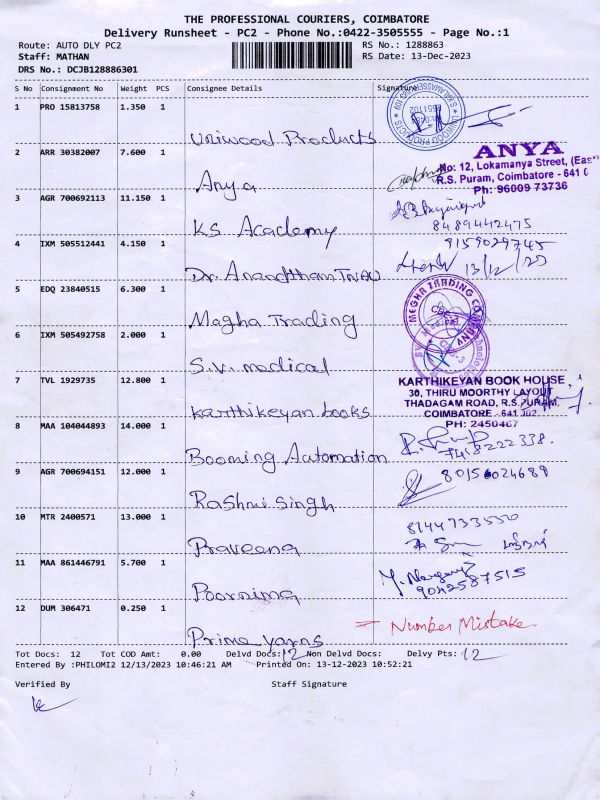 THE PROFESSIONAL COURIERS, COIMBATORE
Delivery Runsheet - PC2 - Phone No.:0422-3505555 - Page No.:1
Route: AUTO DLY PC2
RS No.: 1288863
Staff: MATHAN
RS Date: 13-Dec-2023
DRS No.: DCJB128886301
S No Consignment No Weight PCS Consignee Details Signature
1 PRO 15813758 1.350 1
Uniwood Products
2 ARR 30382007 7.600 1
ANYA
No: 12, Lokamanya Street, (East)
R.S. Puram, Coimbatore - 641 0
Ph: 96009 73736
Anya
3 AGR 700692113 11.150 1
8489442475
KS Academy
4 IXM 505512441 4.150 1
9159029745
13/12/23
Dr. Anandtham TNAU
5 EDQ 23840515 6.300 1
MEGHA TRADING COMPANY
Megha Trading
6 IXM 505492758 2.000 1
S.V. medical
7 TVL 1929735 12.800 1
KARTHIKEYAN BOOK HOUSE
30, THIRU MOORTHY LAYOUT
THADAGAM ROAD, R.S.PURAM,
COIMBATORE - 641 002.
PH: 2450467
karthikeyan books
8 MAA 104044893 14.000 1
7418222338.
Booming Automation
9 AGR 700694151 12.000 1
80156024689
Rashmi Singh
10 MTR 2400571 13.000 1
8144733550
Praveena
11 MAA 861446791 5.700 1
9042587515
Poornima
12 DUM 306471 0.250 1
Number Mistake.
Prime Yarns
Tot Docs: 12 Tot COD Amt: 0.00 Delvd Docs: 12 Non Delvd Docs: Delvy Pts: 12
Entered By :PHILOMI2 12/13/2023 10:46:21 AM Printed On: 13-12-2023 10:52:21
Verified By Staff Signature